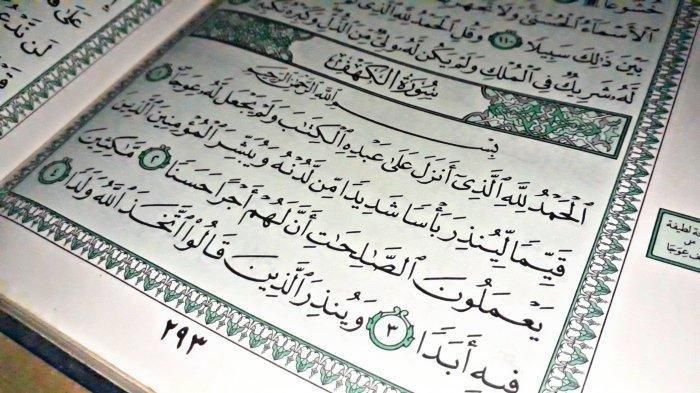 ٱلْأَسْمَآءُ ٱلْحُسْنَىٰ وَلَا تَجْهَرْ
بَيْنَ ذَٰلِكَ سَبِيلًا ١١٠ وَقُلِ ٱلْحَمْدُ لِلَّهِ ٱلَّذِى
لَّهُۥ شَرِيكٌ فِى ٱلْمُلْكِ وَلَمْ يَكُن لَّهُۥ وَلِىٌّ مِّنَ ٱلذُّلِّ وَكَبِّرْهُ تَكْبِيرًا
سُورَةُ الْكَهْفِ
بِسْمِ ٱللَّهِ ٱلرَّحْمَٰنِ ٱلرَّحِيمِ
ٱلْحَمْدُ لِلَّهِ ٱلَّذِىٓ أَنزَلَ عَلَىٰ عَبْدِهِ ٱلْكِتَٰبَ وَلَمْ يَجْعَل لَّهُۥ عِوَجَا ١
قَيِّمًا لِّيُنذِرَ بَأْسًا شَدِيدًا مِّن لَّدُنْهُ وَيُبَشِّرَ ٱلْمُؤْمِنِينَ ٱلَّذِينَ
يَعْمَلُونَ ٱلصَّٰلِحَٰتِ أَنَّ لَهُمْ أَجْرًا حَسَنًا ٢ مَّٰكِثِينَ
فِيهِ أَبَدًا ٣ وَيُنذِرَ ٱلَّذِينَ قَالُوا۟ ٱتَّخَذَ ٱللَّهُ وَلَدًا ٤
٢٩٣